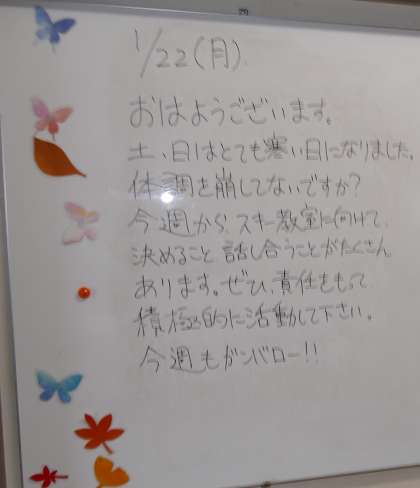 1/22(月)
おはようございます。
土、日はとても寒い日になりました。
体調を崩してないですか?
今週から、スキー教室に向けて、
決めること、話し合うことがたくさん
あります。ぜひ、責任をもって
積極的に活動して下さい。
今週もガンバロー!!